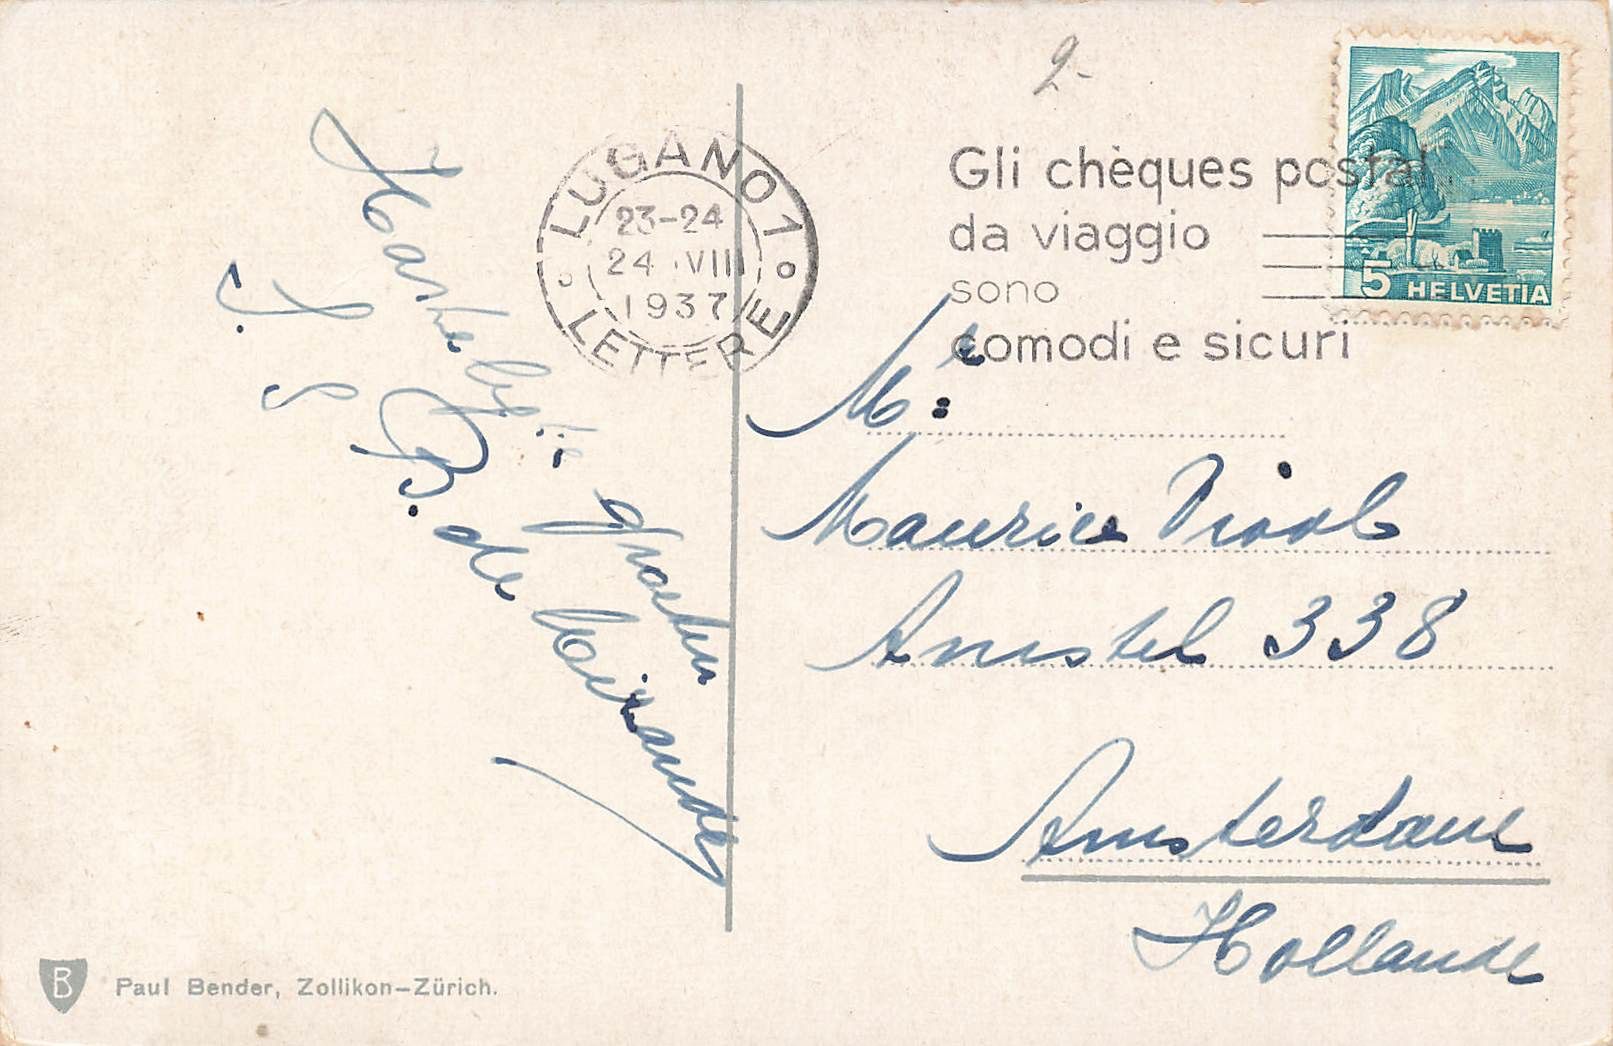 2-
LUGANO 1
23-24
24.VIII
1937
LETTERE
Gli chèques postali
da viaggio
sono
comodi e sicuri
5 HELVETIA
Hartelijke groeten
J. S
B. de Miranda
Mr:
Maurice Viool
Amstel 338
Amsterdam
Hollande
B Paul Bender, Zollikon-Zürich.